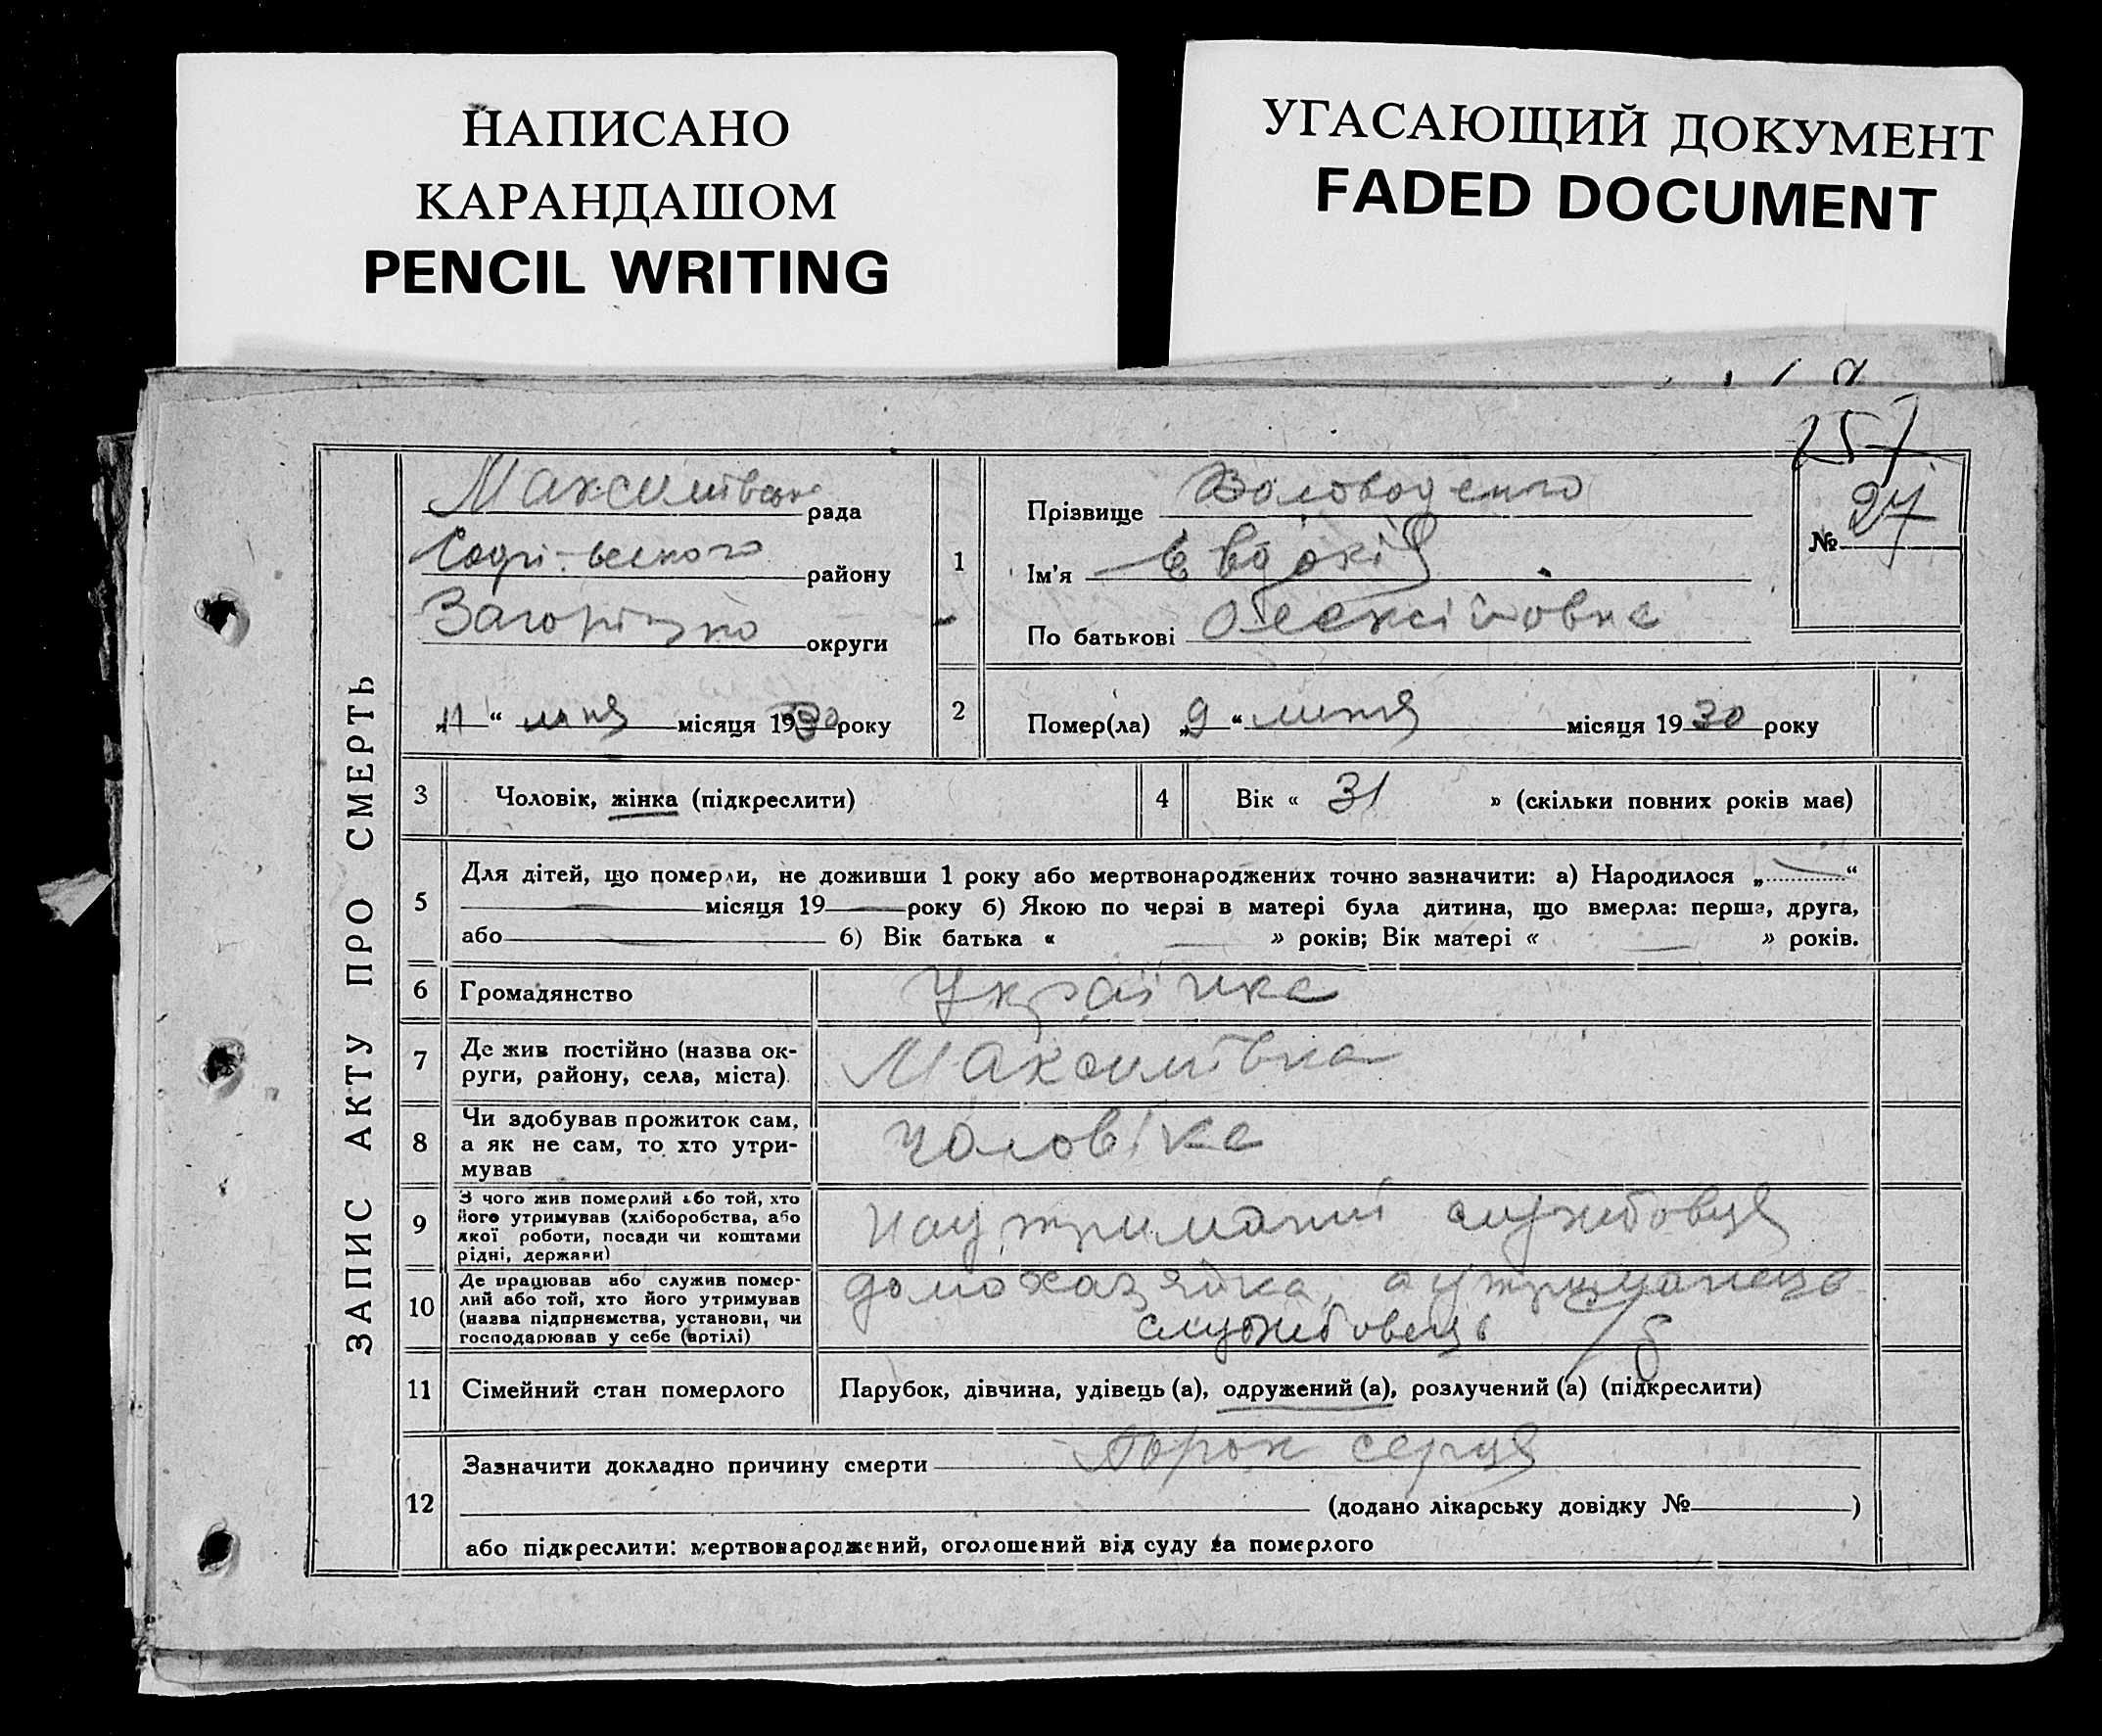 НАПИСАНО
КАРАНДАШОМ
PENCIL WRITING
УГАСАЮЩИЙ ДОКУМЕНТ
FADED DOCUMENT
157
ЗАПИС АКТУ ПРО СМЕРТЬ
рада
району
округи
„11“ липня місяця 1930 року
1
Прізвище
Ім'я Євдокія
По батькові Олексіівна
№ 27
2
Помер(ла) „9“ липня місяця 1930 року
3 Чоловік, жінка (підкреслити)
4 Вік « 31 » (скільки повних років має)
5 Для дітей, що померли, не доживши 1 року або мертвонароджених точно зазначити: а) Народилося „ “
місяця 19 року б) Якою по черзі в матері була дитина, що вмерла: перша, друга,
або 6) Вік батька « » років; Вік матері « » років.
6 Громадянство Українка
7 Де жив постійно (назва ок-
руги, району, села, міста) Максимівка
8 Чи здобував прожиток сам,
а як не сам, то хто утри-
мував
чоловіка
9 З чого жив померлий або той, хто
його утримував (хліборобства, або
якої роботи, посади чи коштами
рідні, держави)
на утриманні службовця
10 Де працював або служив помер-
лий або той, хто його утримував
(назва підприємства, установи, чи
господарював у себе (артілі)
домохазяйка, а утриманець
службовець
11 Сімейний стан померлого Парубок, дівчина, удівець (а), одружений (а), розлучений (а) (підкреслити)
12 Зазначити докладно причину смерти Порок серця
(додано лікарську довідку № )
або підкреслити: мертвонароджений, оголошений від суду за померлого